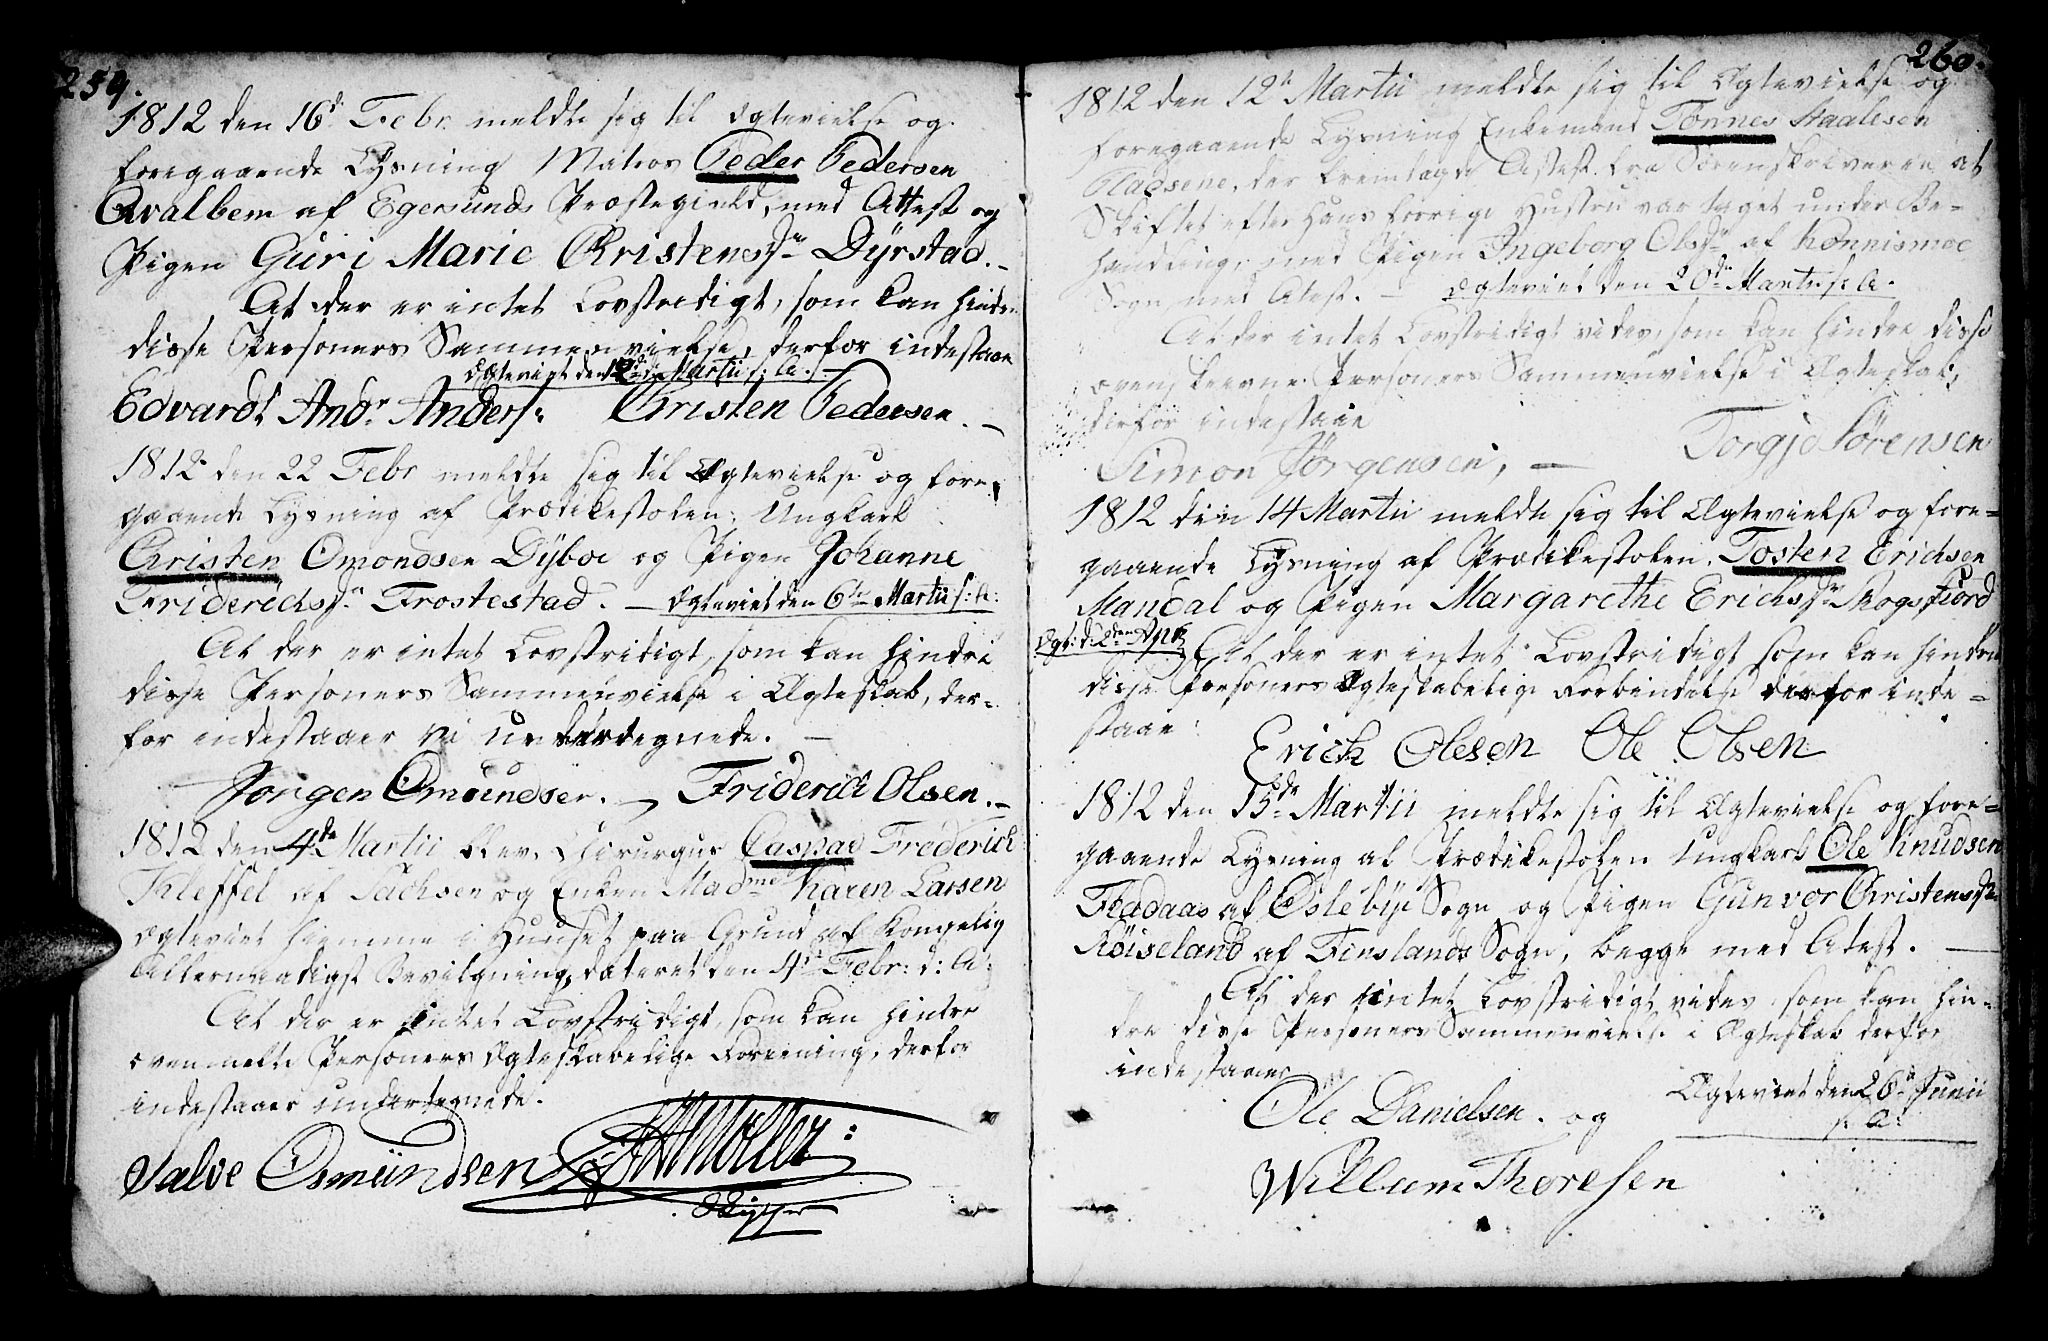 259.
1812 den 16de Febr. meldte sig til Ægtevielse og
foregaaende Lysning Matros Peder Pedersen
Qvalbem af Egersunds Præstegield, med Attest og
Pigen Guri Marie Christensdr Dÿrstad. –
At der er intet Lovstridigt, som kan hindre
disse Personers Sammenvielse, derfor indestaae
Ægteviet den 12de Martii s: A. –
Edvardt Andr Anders: Christen Pedersen. –
1812 den 22 Febr meldte sig til Ægtevielse og fore-
gaaende Lysning af Prædikestolen, Ungkarl
Christen Omondsen Dÿboe og Pigen Johanne
Friderichsdr Frostestad. – Ægteviet den 6te Martii s: A:
At der er intet Lovstridigt, som kan hindre
disse Personers Sammenvielse i Ægteskab, der-
for indestaaer vi undertegnede. –
Jørgen Omundsen. – Friderich Olsen. –
1812 den 4de Martii blev Chirurgus Caspar Frederich
Kleffel af Sachsen og Enken Madme Karen Larsen
Ægteviet hiemme i Huuset paa Grund af Kongelig
Allernaadigst Bevilgning, dateret den 4de Febr: d: A:
At der er intet Lovstridigt, som kan hindre
ovenmelte Personers Ægteskabelige Foreening, derfor
indestaaer undertegnede.
Salve Osmündsen Møller:
260.
1812 den 12te Martii meldte sig til Ægtevielse og
foregaaende Lysning Enkemand Tønnes Staalesen
Pladsene, der fremlagde Attest fra Sorenskriveren at
Skiftet efter Hans forrige Hustru var taget under Be-
handling, med Pigen Ingeborg Olsdr af Konnismoe
Sogn med Atest. – Ægteviet den 20de Martii s: A.
At der intet Lovstridigt vides, som kan hindre disse
ovenskrevne Personers Sammenvielse i Ægteskab,
derfor indestaae
Simon Jørgensen, – Torgje Sørensen
1812 den 14 Martii meldte sig til Ægtevielse og fore-
gaaende Lysning af Prædikestolen, Tosten Erichsen
Mandal og Pigen Margarethe Erichsdr Skogsfiord
Ægt: d: 2den Apr
At der er intet Lovstridigt som kan hindre
disse Personers Ægteskabelige Forbindelse derfor inde-
staae:
Erich Olesen Ole Olsen
1812 den 15de Martii meldte sig til Ægtevielse og fore-
gaaende Lysning af Prædikestolen Ungkarl Ole Knudsen
Fladaas af Øslebye Sogn og Pigen Gunvor Christensdr
Røiseland af Finslands Sogn, begge med Atest. –
At der intet Lovstridigt vides, som kan hin-
dre disse Personers Sammenvielse i Ægteskab derfor
indestaaer
Ægteviet den 26de Junii
s: A:
Ole Danielsen. og
Willum Thoresen